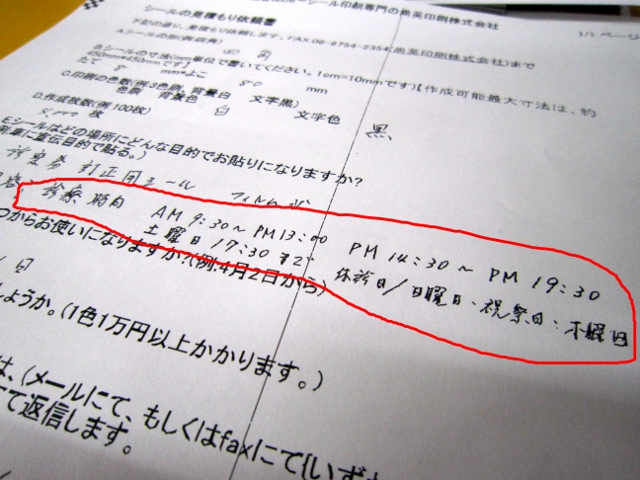 シール印刷専門の尚英印刷株式会社
1/1 ページ
シールの見積もり依頼書
下記の通り、見積もり依頼します。FAX 06-6754-2354、尚英印刷(株)まで
A.シールの形(例:四角) 四角
B.シールの寸法(mm単位で書いてください。1cm=10mmです)【作成可能最大寸法は、約
450mm×450mmです】
たて 8 mm*よこ 80 mm
C.印刷の色数(例:3色刷、背景白 文字黒)
色刷 背景色 白 文字色 黒
D.作成枚数(例100枚)
枚
Eシールはどの場所にどんな目的でお貼りになりますか?
列車に宣伝目的で貼る。)
診察券 訂正用シール フィルム
診療時間 AM 9:30〜PM13:00 PM 14:30〜 PM 19:30
土曜日 17:30まで 休診日/日曜日・祝祭日・木曜日
つからお使いになりますか?(例:4月2日から)
日
しょうか。(1色1万円以上かかります。)
は、(メールにて、もしくはfaxにて{いず
て返信します。